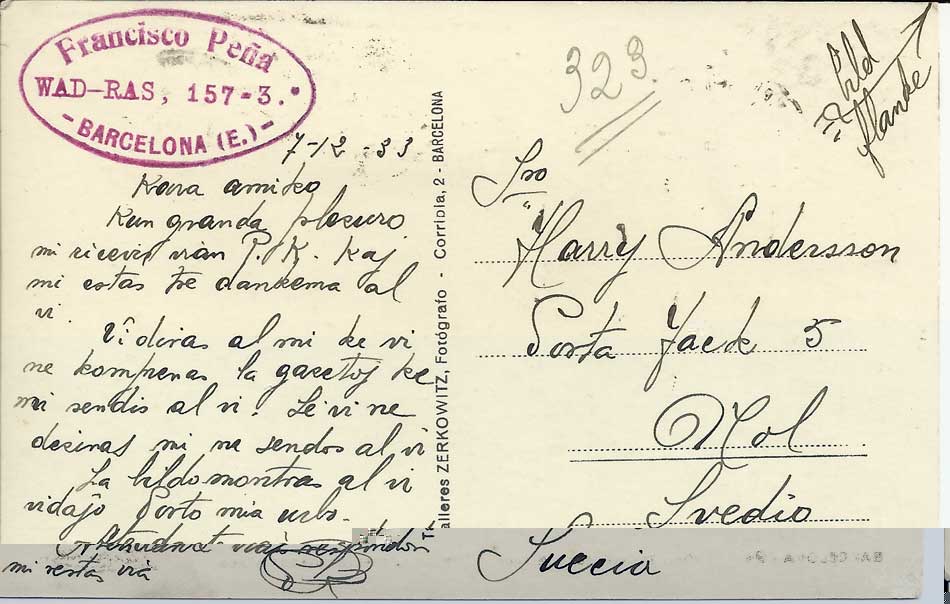 Francisco Peña
WAD-RAS, 157-3.°
- BARCELONA (E.) -
7-12-33
Kara amiko
Kun granda plezuro
mi ricevis vian P. K. Kaj
mi estas tre dankema al
vi.
Vi diras al mi ke vi
ne komprenas la gazetoj ke
mi sendis al vi. Se vi ne
deziras mi ne sendos al vi
La bildo montras al vi
vidajo Porto mia urbo.
respondon
mi restas via
Talleres ZERKOWITZ, Fotógrafo - Corribia, 2 - BARCELONA
323
bild
flanke
Sro
Harry Andersson
Posta Jack 5
Mol
Svedio
Suecia